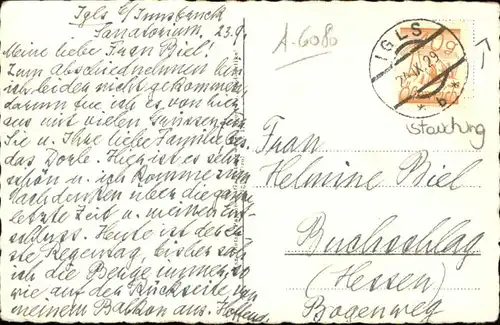 Igls b/Innsbruck
Sanatorium. 23.9.
Meine liebe Frau Biel!
Zum Abschiednehmen bin
ich leider nicht gekommen,
darum tue ich es von hier
aus mit vielen Grüssen für
Sie u. Ihre liebe Familie bes.
das Dorle. Hier ist es sehr
schön u. ich komme zum
Nachdenken über die ganze
letzte Zeit u. meinen Ent-
schluss. Heute ist der er-
ste Regentag, bisher sah
ich die Berge immer, so
wie auf der Rückseite von
meinem Balkon aus.
A-6080
IGLS
29
* b *
stauchung
Frau
Helmine Biel
Buchschlag
(Hessen)
Bogenweg